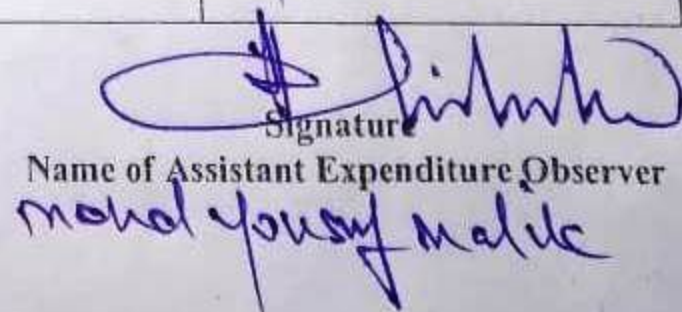 Signature
Name of Assistant Expenditure Observer
Mohd Yousuf Malik